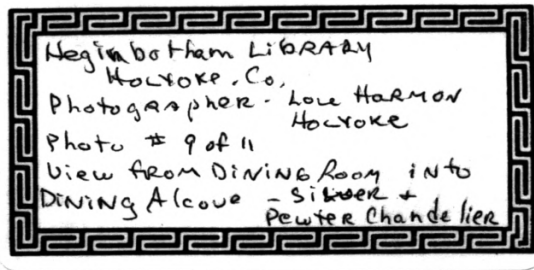 Heginbotham LIBRARY
HOLYOKE, Co,
Photographer - Lou HARMON
HOLYOKE
Photo # 9 of 11
View FROM DINING Room into
DINING Alcove - SILVER +
Pewter Chandelier